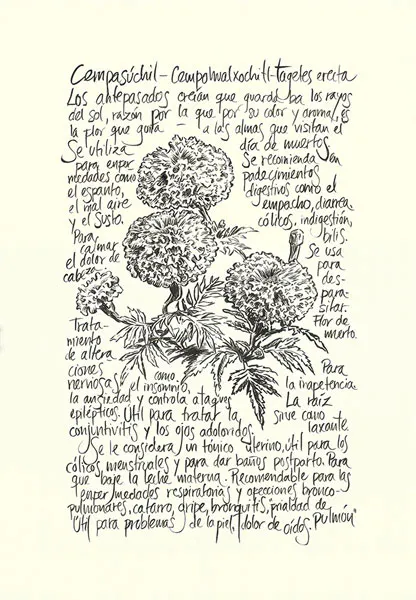 Cempasúchil – Cempohualxochitl – Tagetes erecta
Los antepasados creían que guardaba los rayos
del sol, razón por la que por su color y aroma, es
la flor que guía – a las almas que visitan el
día de muertos
Se utiliza
para enfer
medades como
el espanto,
el mal aire
y el susto.
Para
calmar
el dolor de
cabeza
Trata-
miento
de altera
ciones
nerviosas como
el insomnio,
la ansiedad y controla ataques
epilépticos. Útil para tratar la
conjuntivitis y los ojos adoloridos.
Se recomienda en
padecimientos
digestivos como el
empacho, diarrea,
cólicos, indigestión,
bilis.
Se usa
para
des-
para-
sitar.
Flor de
muerto.
Para
la inapetencia.
La raíz
sirve como
laxante.
Se le considera un tónico uterino, útil para los
cólicos menstruales y para dar baños postparto. Para
que baje la leche materna. Recomendable para las
enfermedades respiratorias y afecciones bronco-
pulmonares, catarro, gripe, bronquitis, frialdad de
"Útil para problemas de la piel, dolor de oídos. Pulmón"